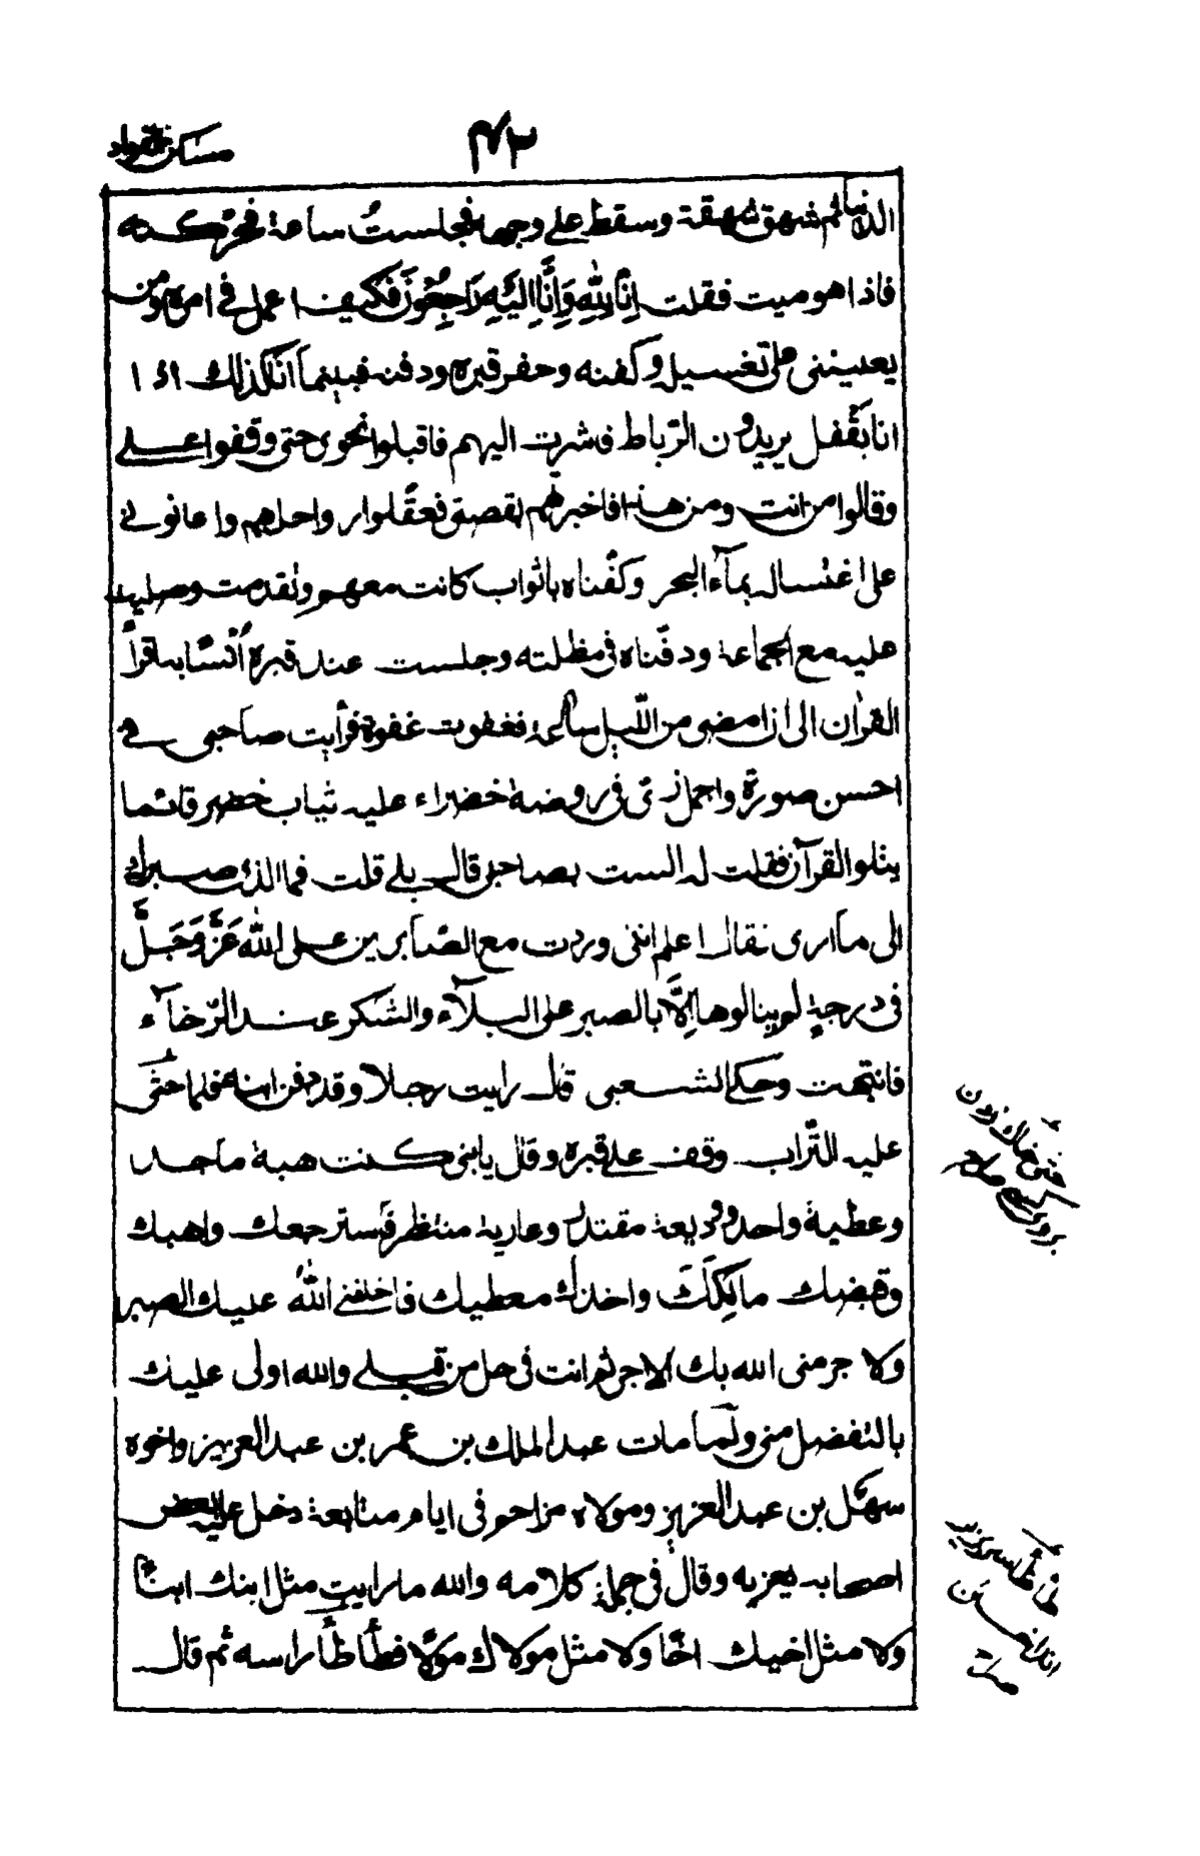 مسكن الفؤاد
٤٣
الدنيا ثم شهق شهقة وسقط على وجهه فجلست ساعة فحركته
فاذا هو ميت فقلت اِنَّا لِلّٰهِ وَاِنَّا اِلَيْهِ رَاجِعُوْنَ فكيف اعمل فى امره ومن
يعيننى على تغسيله وكفنه وحفر قبره ودفنه فبينما انا كذلك اذ ا
انا بقفل يريدون الرّباط فاشرت اليهم فاقبلوا نحوى حتى وقفوا علے
وقالوا من انت ومن هذا فاخبرتهم بقصتى فعقلوا رواحلهم واعانونے
على اغتساله بمآء البحر وكفّناه باثواب كانت معهم وتقدمت وصليت
عليه مع الجماعة ودفّناه فى مظلته وجلست عند قبره اُنْسًا به اقرأ
القرآن الى ان مضى من اللّيل ساعة فغفوت غفوة فرأيت صاحبى فے
احسن صورة واجمل زىّ فى روضة خضراء عليه ثياب خضر قائما
يتلو القرآن فقلت له الست بصاحبى قال بلے قلت فما الذى صيرك
الى ما ارى فقال اعلم اننى وردت مع الصّابرين على اللّٰه عَزَّ وَجَلَّ
فى درجةٍ لم ينالوها اِلّا بالصبر على البلآء والشكر عند الرّخآء
فانتبهت وحكى الشعبى قال رايت رجلا وقد دفن ابنه فلما حثى
عليه التّراب وقف على قبره وقال يابنى كنت هبة ماجد
وعطية واحد ووديعة مقتدر وعارية منتظر فاسترجعك واهبك
وقبضك مالكك واخذك معطيك فاخلفنى اللّٰهُ عليك الصبر
ولا حرمنى الله بك الاجر ثم انت فى حل من قبلے والله اولى عليك
بالتفضل منى ولمّا مات عبد الملك بن عمر بن عبد العزيز واخوه
سهل بن عبد العزيز ومولاه مزاحم فى ايام متتابعة دخل عليه بعض
اصحابه يعزيه وقال فى جملة كلامه والله ما رايت مثل ابنك ابنًا
ولا مثل اخيك اخًا ولا مثل مولاك مولًا فطأطأ راسه ثم قال